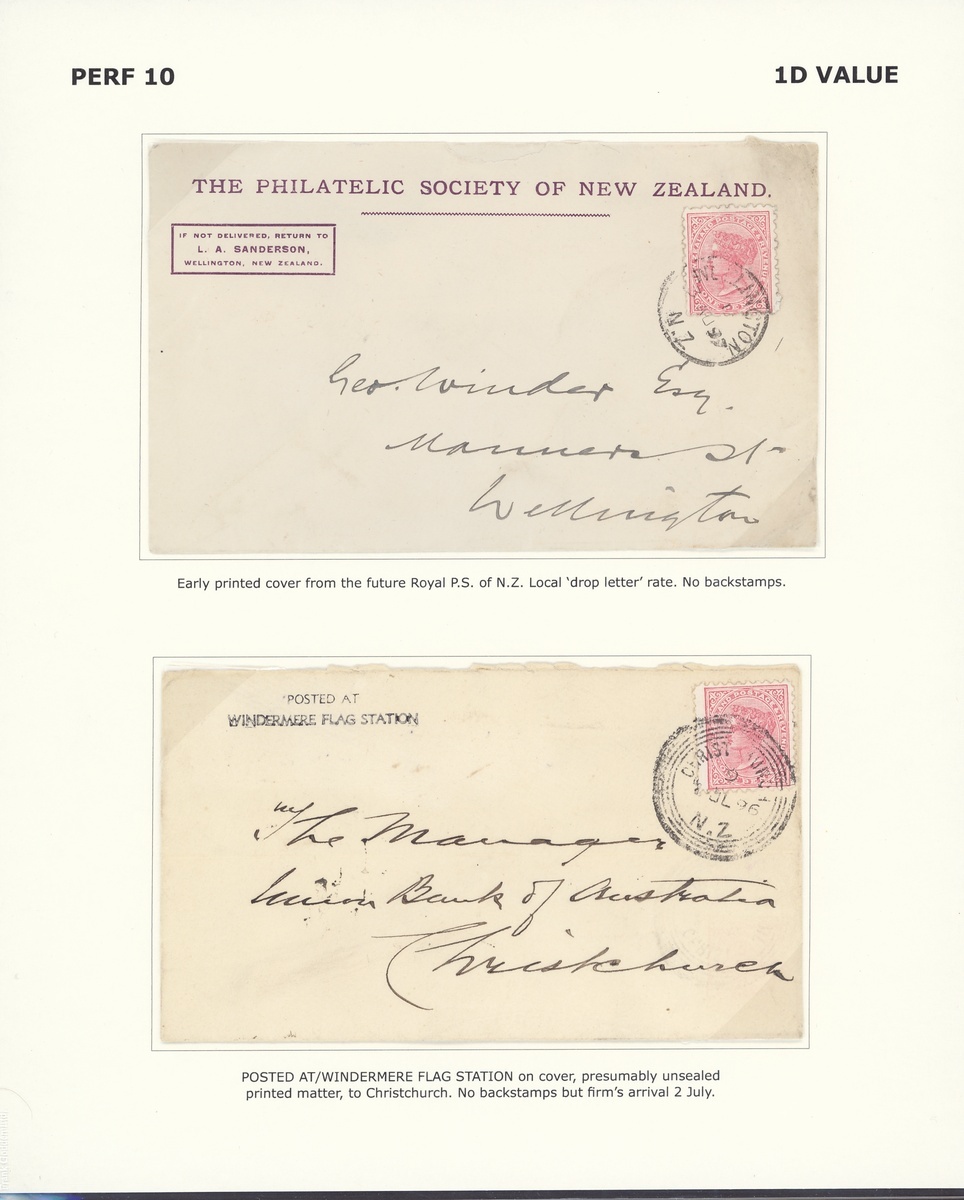 PERF 10
1D VALUE
THE PHILATELIC SOCIETY OF NEW ZEALAND.
IF NOT DELIVERED, RETURN TO
L. A. SANDERSON,
WELLINGTON, NEW ZEALAND.
WELLINGTON
N.Z
Geo. Winder Esq.
Manners St.
Wellington
Early printed cover from the future Royal P.S. of N.Z. Local ‘drop letter’ rate. No backstamps.
POSTED AT
WINDERMERE FLAG STATION
CHRISTCHURCH
JL 96
N.Z
The Manager
Union Bank of Australia
Christchurch
POSTED AT/WINDERMERE FLAG STATION on cover, presumably unsealed
printed matter, to Christchurch. No backstamps but firm’s arrival 2 July.